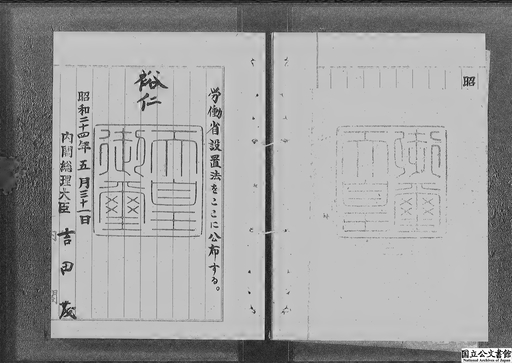 労働省設置法をここに公布する。
裕仁
天皇御璽
昭和二十四年五月三十一日
内閣総理大臣 吉田茂
昭
国立公文書館
National Archives of Japan